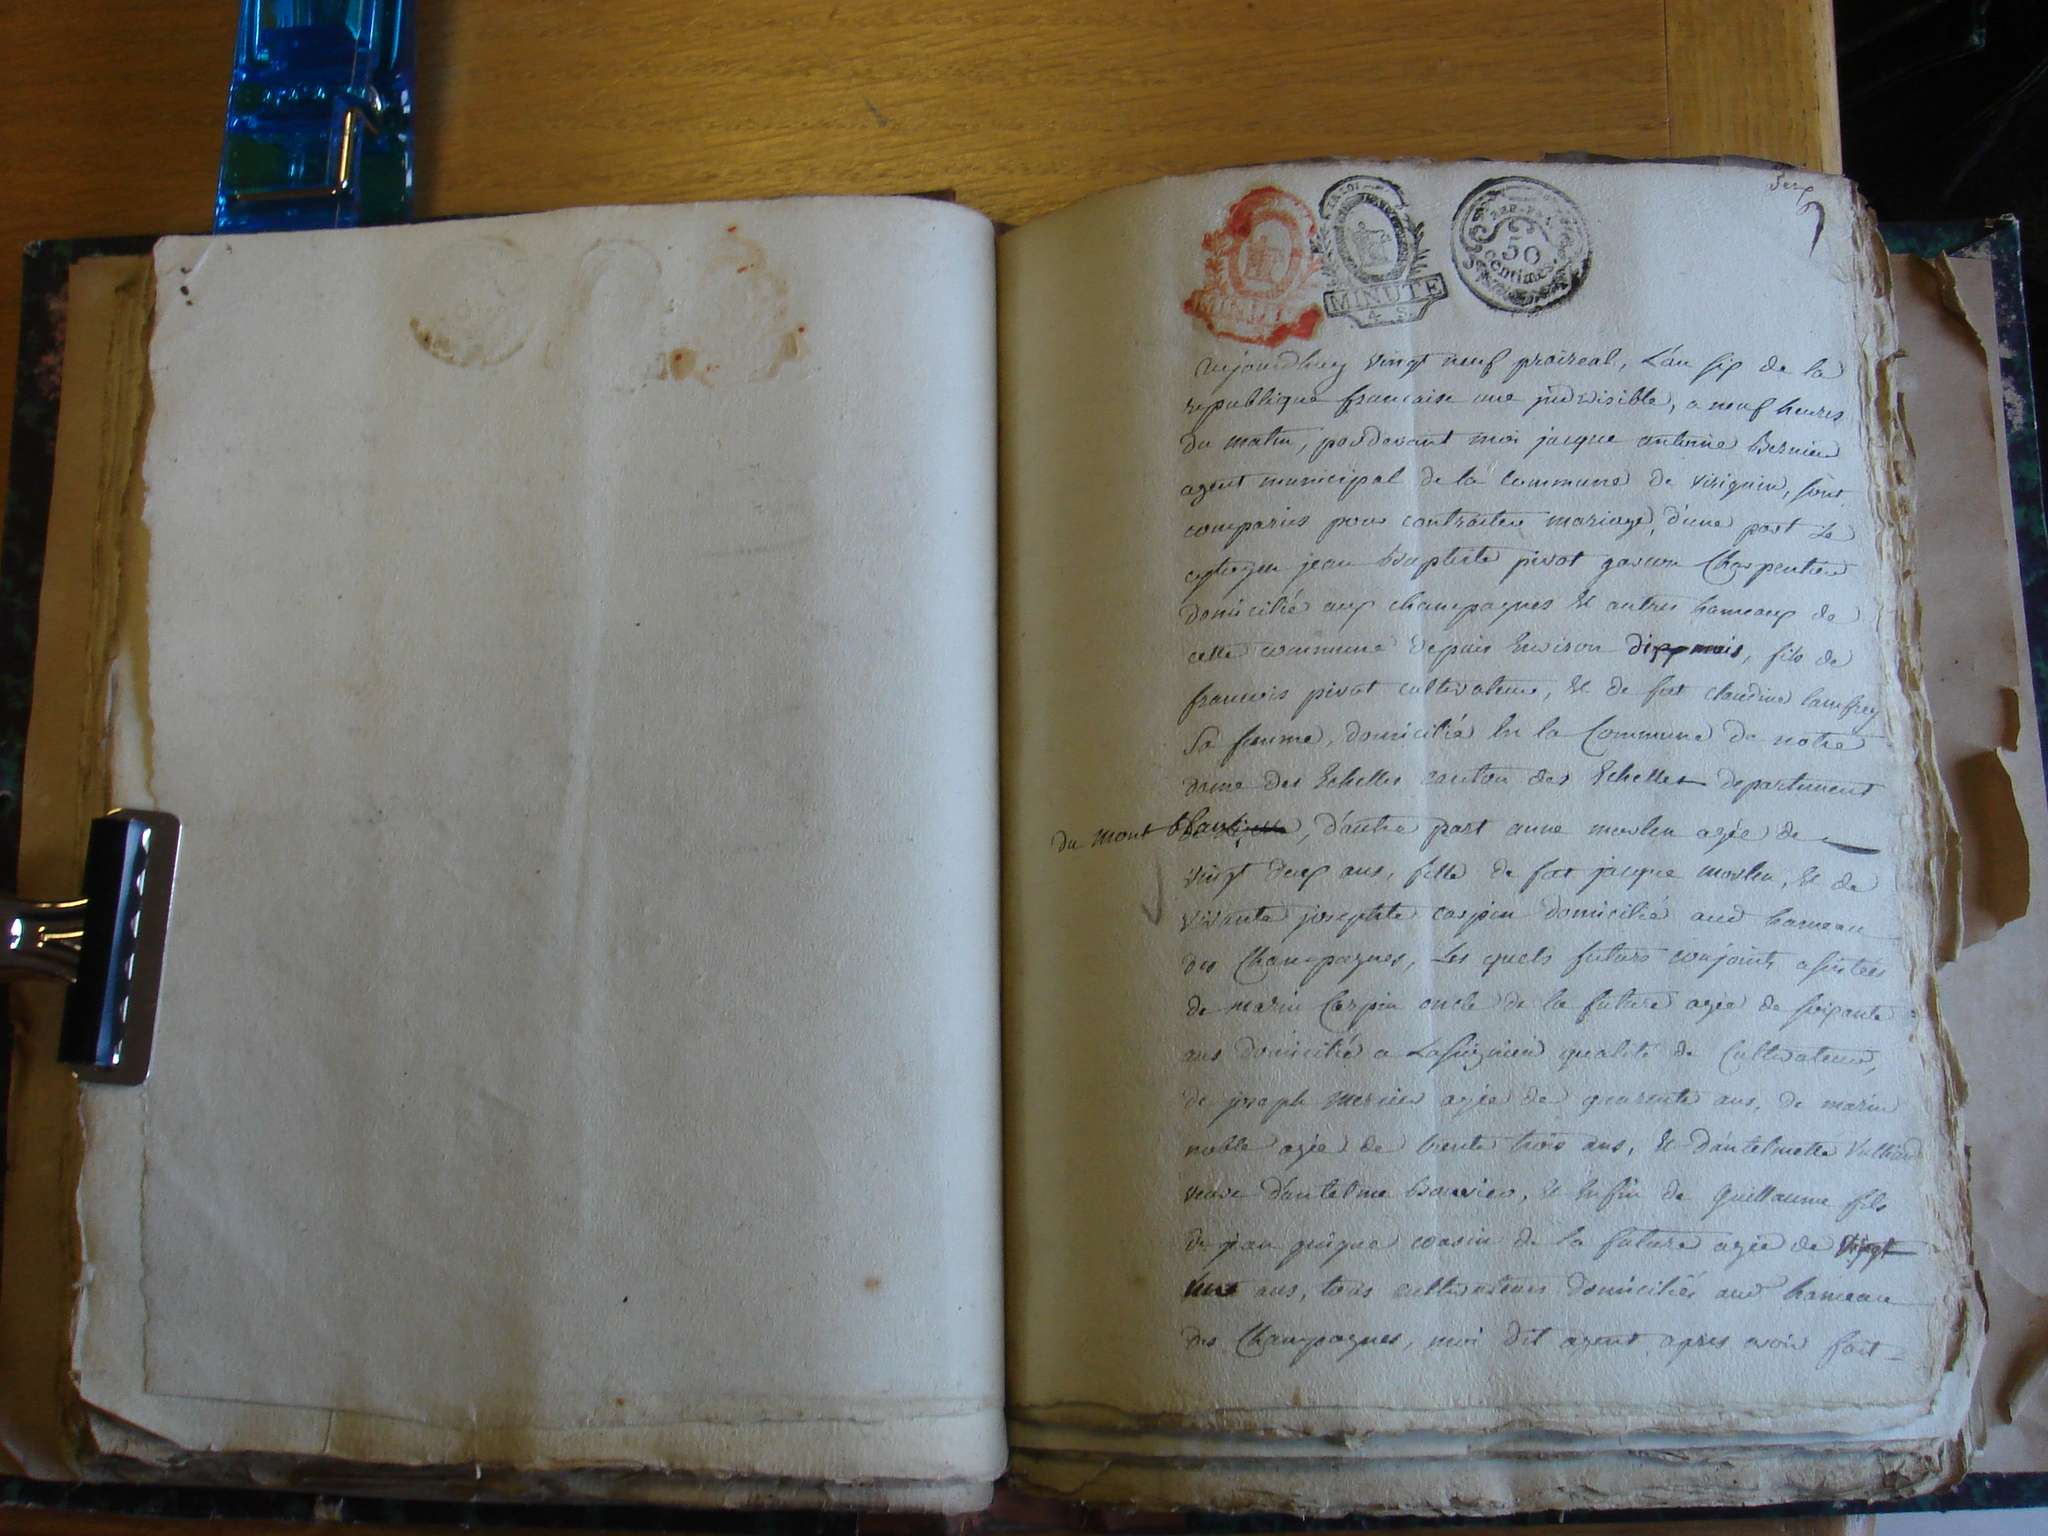 MINUTE
MINUTE
50
centimes
aujourdhuy vingt neuf praireal, L'an six de la
republique francaise une indivisible, a neuf heures
du matin, pardevant moi jacque antoine Bernier
agent municipal de la commune de virignin, sont
comparus pour contracter mariage, d'une part Le
citoyen jean baptiste pivot garcon Charpentier
domicilié aux champagnes & autres hameaux de
cette commune depuis Environ dix mois, fils de
francois pivot cultivateur, & de fut claudine lamfrey
Sa femme, domicilié En la Commune de notre
dame des Echelles canton des Echelles departement
du mont blanc, d'autre part anne marlin agée de
vingt deux ans, fille de fut jacque marlin, & de
vivante josephte carpin domicilié aud hameau
des Champagnes, Les quels futurs conjoints assistés
de marin Carpin oncle de la future agée de soixante
ans domicilié a qualité de Cultivateur,
de joseph mercier agée de quarente ans, de marin
noble agée de trente trois ans, & d'antelmette
veuve d'antelme bouvier, & Enfin de Guillaume fils
de jean guigue cousin de la future agée de vingt
ans, tous cultivateurs domiciliés aud hameau
des Champagnes, moi dit agent, apres avoir fait